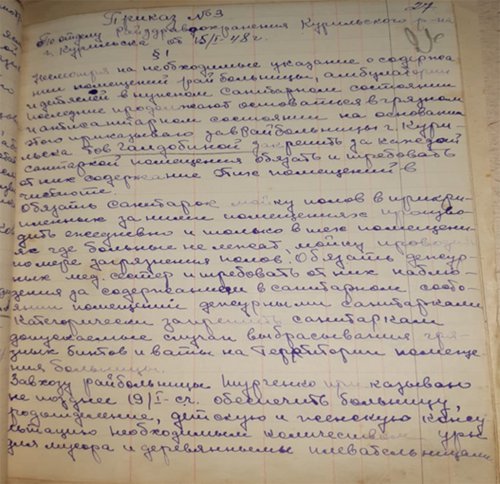 27
Приказ № 3
По отделу Райздравоохранения Курильского р-на
г. Курильска от 15/I-48 г.
§ 1
Несмотря на необходимые указание о содержа
нии помещений райбольницы, амбулатории
и детяслей в надлежащем санитарном состоянии
последние продолжают оставатся в грязном
и антисанитарном состоянии на основании
этого приказываю зав райбольницы г. Кури-
льска тов закрепить за каждой
санитаркой помещения обязать и требовать
от них содержание этих помещений в
чистоте.
Обязать санитарок мойку полов в прикре-
пленных за ними помещениях произво-
дить ежедневно и только в тех помещени-
ях где больные не лежат, мойку проводить
по мере загрязнения полов. Обязать дежур-
ных мед. сестер и требовать от них наблю-
дения за содержанием в санитарном состо-
янии помещений дежурными санитарками
Категорически запретить санитаркам
допускаемые случаи выбрасывания гря-
зных бинтов и ваты на территории помеще-
ния больницы.
Завхозу райбольницы приказываю
не позднее 19/I-сг. обеспечить больницу,
родотделение, детскую и женскую консу
льтацию необходимым количеством урн
для мусора и деревянными плевательницами